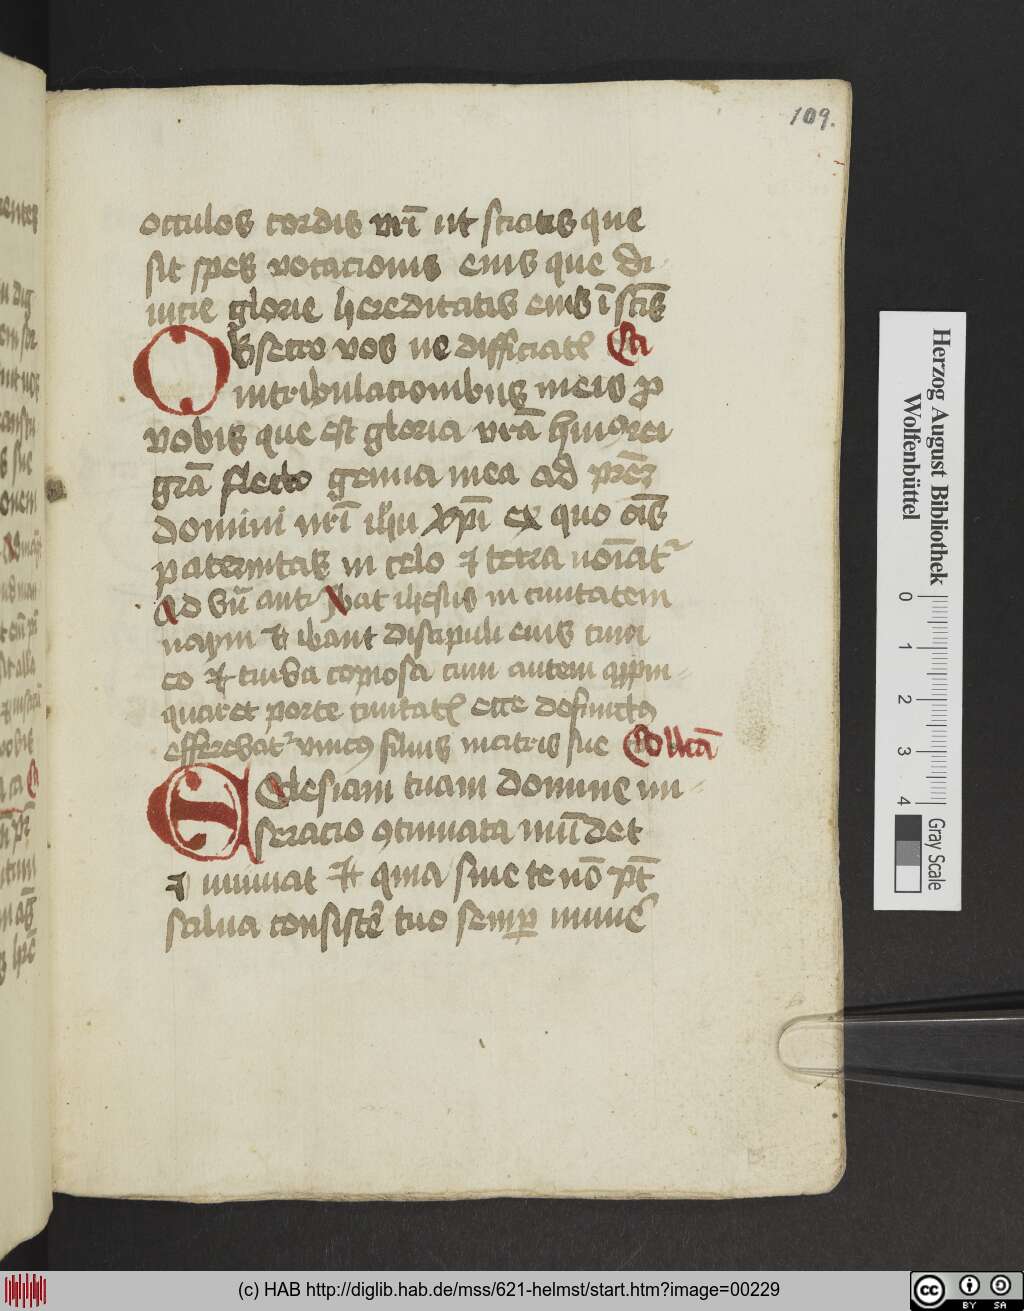 109.
occulos cordis vrī ut sciatis que
sit spes vocacionis eius que di
uicie glorie hereditatis eius ī sctīs
Obsecro vos ne difficiatꝭ Ca
in tribulacionibus meis p
vobis que est gloria vrā huiꝰ rei
grā flecto genua mea ad prēꝫ
domini nrī ihu xpī ex quo oīs
paternitas in celo ⁊ terra noīatʳ
Ad vū anꝭ Ibat ihesus in ciuitatem
naym ⁊ ibant discipuli eius cum
eo ⁊ turba copiosa cum autem appin
quaret porte ciuitatꝭ ecce defunctꝰ
efferebatʳ vnicꝰ filius matris sue Collcā
Ecclesiam tuam domine mi
seracio ꝯtinuata mūdet
⁊ muniat Et quia sine te nō pt̄
salua consistē tuo semꝑ munē
Herzog August Bibliothek
Wolfenbüttel
0 1 2 3 4
Gray Scale
(c) HAB http://diglib.hab.de/mss/621-helmst/start.htm?image=00229
cc BY SA